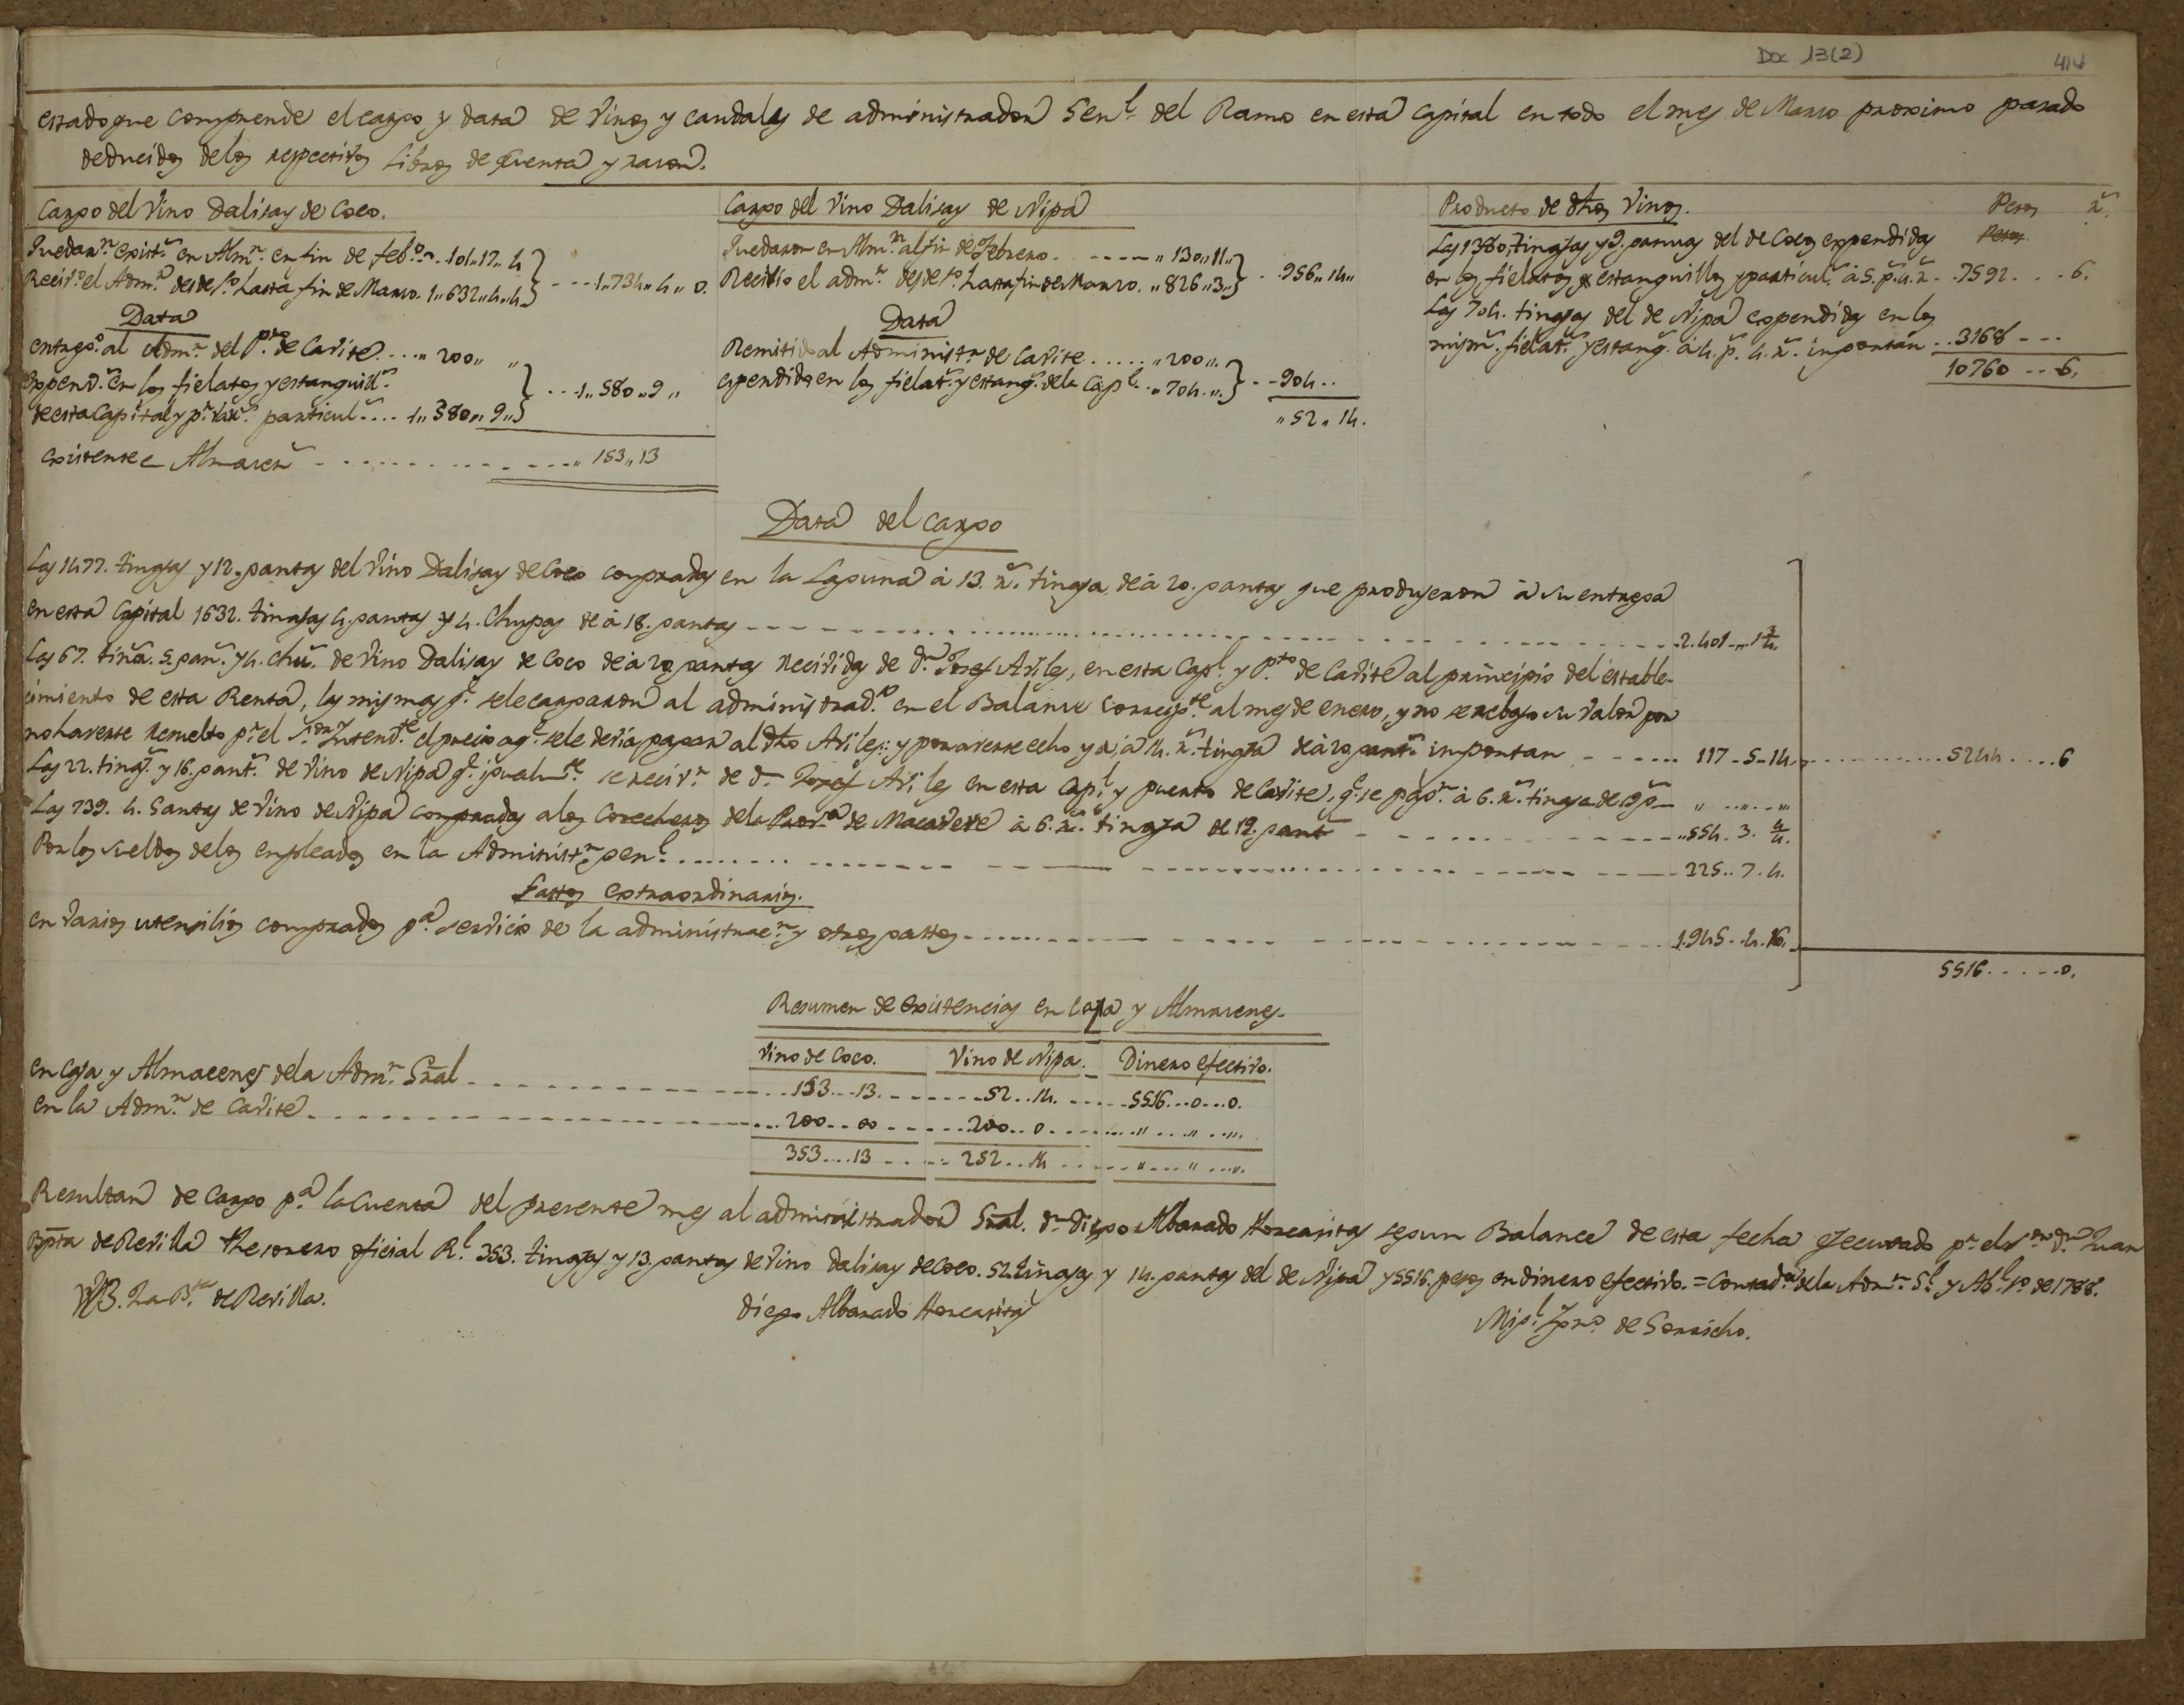 Doc 13(2)
estado que comprende el cargo y data de vinos y caudales de administrador Genl. del Ramo en esta Capital en todo el mes de Marzo proximo pasado
deducidos de los respectivos Libros de Cuenta y razon.
Cargo del Vino Dalisay de Coco.
Quedarn. exists. en Almn. en fin de febo. 101,,17,,4
Recivo. el Admr. desde 1o. hasta fin de Marzo. 1,,632,,4,,4 1,,734,,4,,0.
Data
entrego. al Admr. del Pto. de Cavite 200,, ,,
Expends. en los fielatos y estanquills.
de esta Capital y pr. particuls. 1,,380,,9,, 1,,580,,9,,
existente en Almacen ,,153,,13
Cargo del Vino Dalisay de Nipa
Quedaron en Almn. al fin de Febrero. ,,130,,11,,
Recivio el admr. desde 1o. hasta fin de Marzo. ,,826,,3,, 956,,14,,
Data
Remitido al Administr. de Cavite ,,200,,
expendidas en los fielats. y estanqs. de la Capl. ,,704,, 904..
,,52,,14.
Producto de dhos Vinos. Pesos rs.
Las 1380 tinajas y 9. gantas del de Coco expendidas
en los fielatos y estanquillos y particuls. à 5. ps. 4. rs. 7592. 6.
Las 704. tinajas del de Nipa expendidas en los
mismos. fielats. y estanqs. à 4. ps. 4. rs. importan 3168
10760 6.
Data del cargo
Las 1477. tinajas y 12. gantas del Vino Dalisay de Coco compradas en la Laguna à 13. rs. tinaja de à 20. gantas que produjeron à su entrega
en esta Capital 1632. tinajas 4. gantas y 4. Chupas de à 18. gantas 2.401
Las 67. tina. 5. gan. y 4. chu. de Vino Dalisay de Coco de à 20 gantas recividas de Dn. Josef Aviles, en esta Capl. y Pto. de Cavite al principio del estable-
cimiento de esta Renta, las mismas q. se le cargaron al administrador. en el Balance correspte. al mes de enero, y no se rebajo su valor por
no haverse resuelto pr. el Sor. Intendte. el precio a q. se le devia pagar al dho Aviles: y por averse echo ya, à 14. rs. tinaja de à 20 gants. importan 117-5-14 5244 6
Las 22. tinajs. y 16. gants. de vino de Nipa q. igualmte. se recivn. de Dn. Josef Aviles en esta Capl. y puerto de Cavite, q. se pagn. à 6. rs. tinaja de 19 gs.
Las 739. 4. Gantas de vino de Nipa compradas a los Corecheros de la Prova. de Macaveve à 6. rs. tinaja de 19. gants. ,,554. 3.
Por los sueldos de los empleados en la Administrn. genl. 225. 7. 4.
Gastos extraordinarios.
en varios utensilios comprados pa. servicio de la administracn. y otros gastos 1.945. 4. 16.
5516 0.
Resumen de existencias en Caja y Almacenes.
Vino de Coco. Vino de Nipa. Dinero efectivo.
en Caja y Almacenes de la Admn. Gral 153 13. 52 14. 5516 0 0.
en la Admn. de Cavite 200 00 200 0
353 13 252 14
Resultan de Cargo pa. la Cuenta del presente mes al administrador Gral. Dn. Diego Albarado Horcasitas segun Balance de esta fecha ejecutado pr. el Sor. Dn. Juan
Bpta de Revilla thesorero oficial Rl. 353. tinajas y 13. gantas de vino dalisay de Coco. 52 tinajas y 14. gantas del de Nipa y 5516. pesos en dinero efectivo. = Contada. de la Admn. Gl. y Abl. 1o. de 1788.
de Revilla.
Diego Albarado Horcasitas
Migl. de Gorricho.